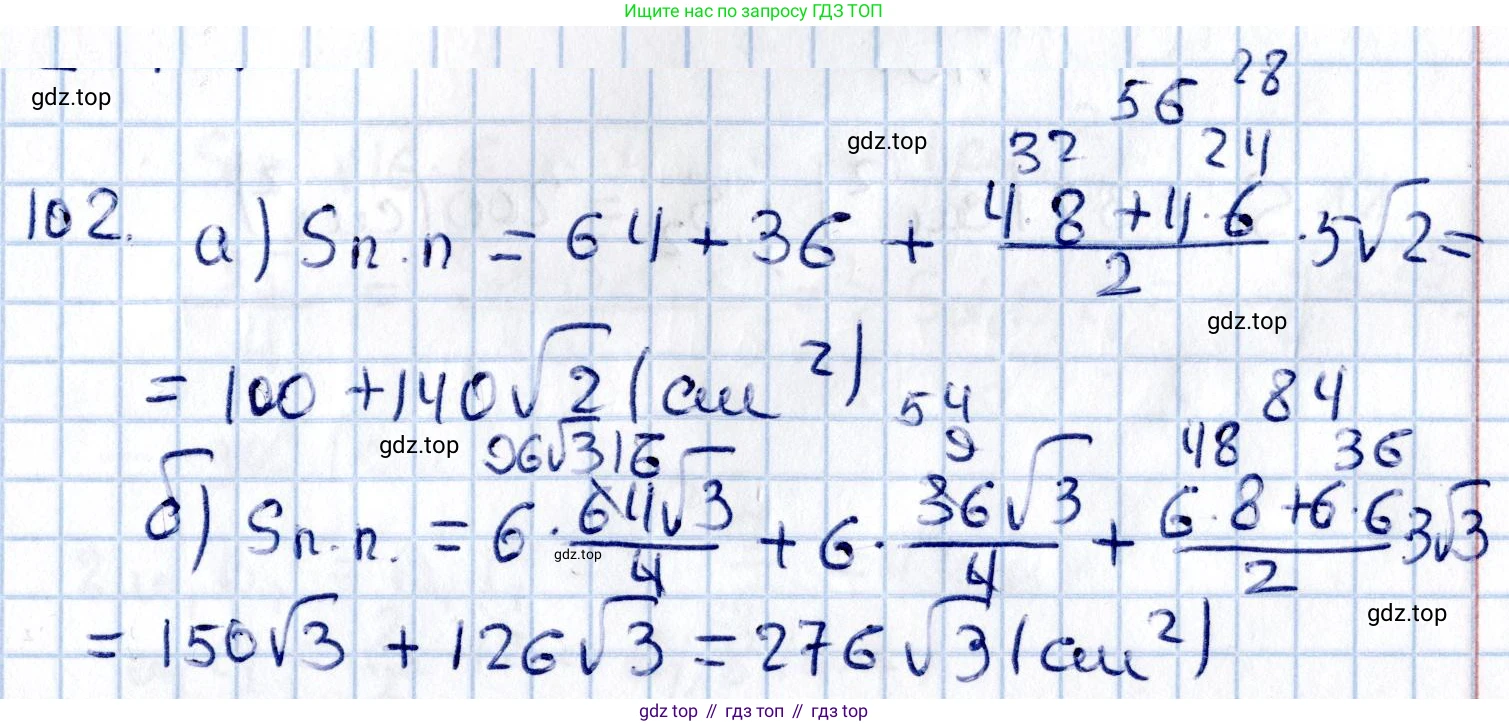 Ищите нас по запросу ГДЗ ТОП
gdz.top
56 28
gdz.top
32 24
102. а) Sп.п = 64 + 36 + (4·8 + 4·6)/2 · 5√2 =
gdz.top
= 100 + 140√2 (см²)
54 84
gdz.top
96√3 16 9 48 36
б) Sп.п. = 6 · 64√3/4 + 6 · 36√3/4 + (6·8 + 6·6)/2 3√3
gdz.top
gdz.top
= 150√3 + 126√3 = 276√3 (см²)
gdz top // гдз топ // гдз top